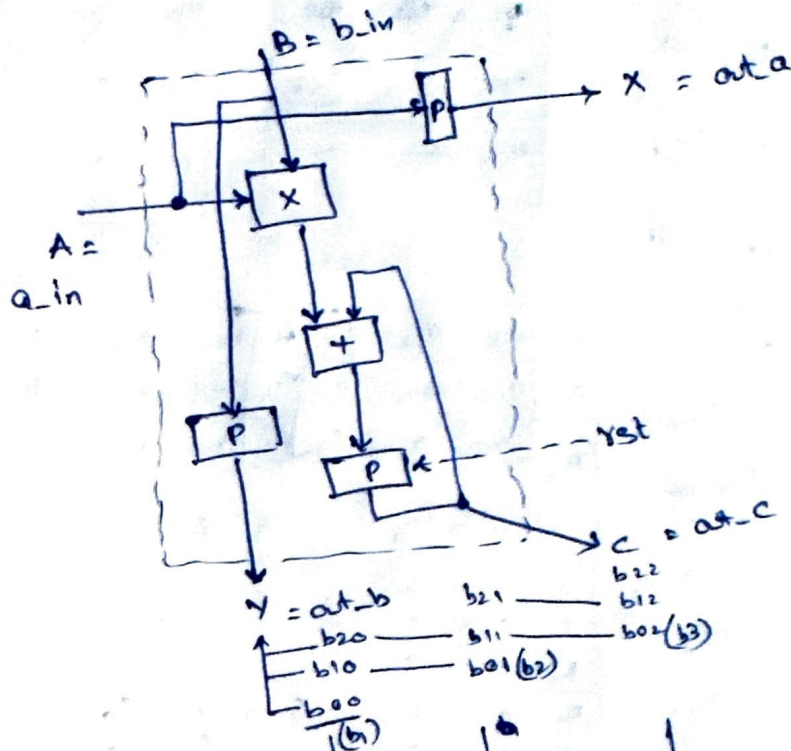 B = b_in
P
X = out_a
X
A =
a_in
+
P
P
rst
C = out_c
b22
Y = out_b
b21 b12
b20 b11 b02(b3)
b10 b01(b2)
b00
(b1)